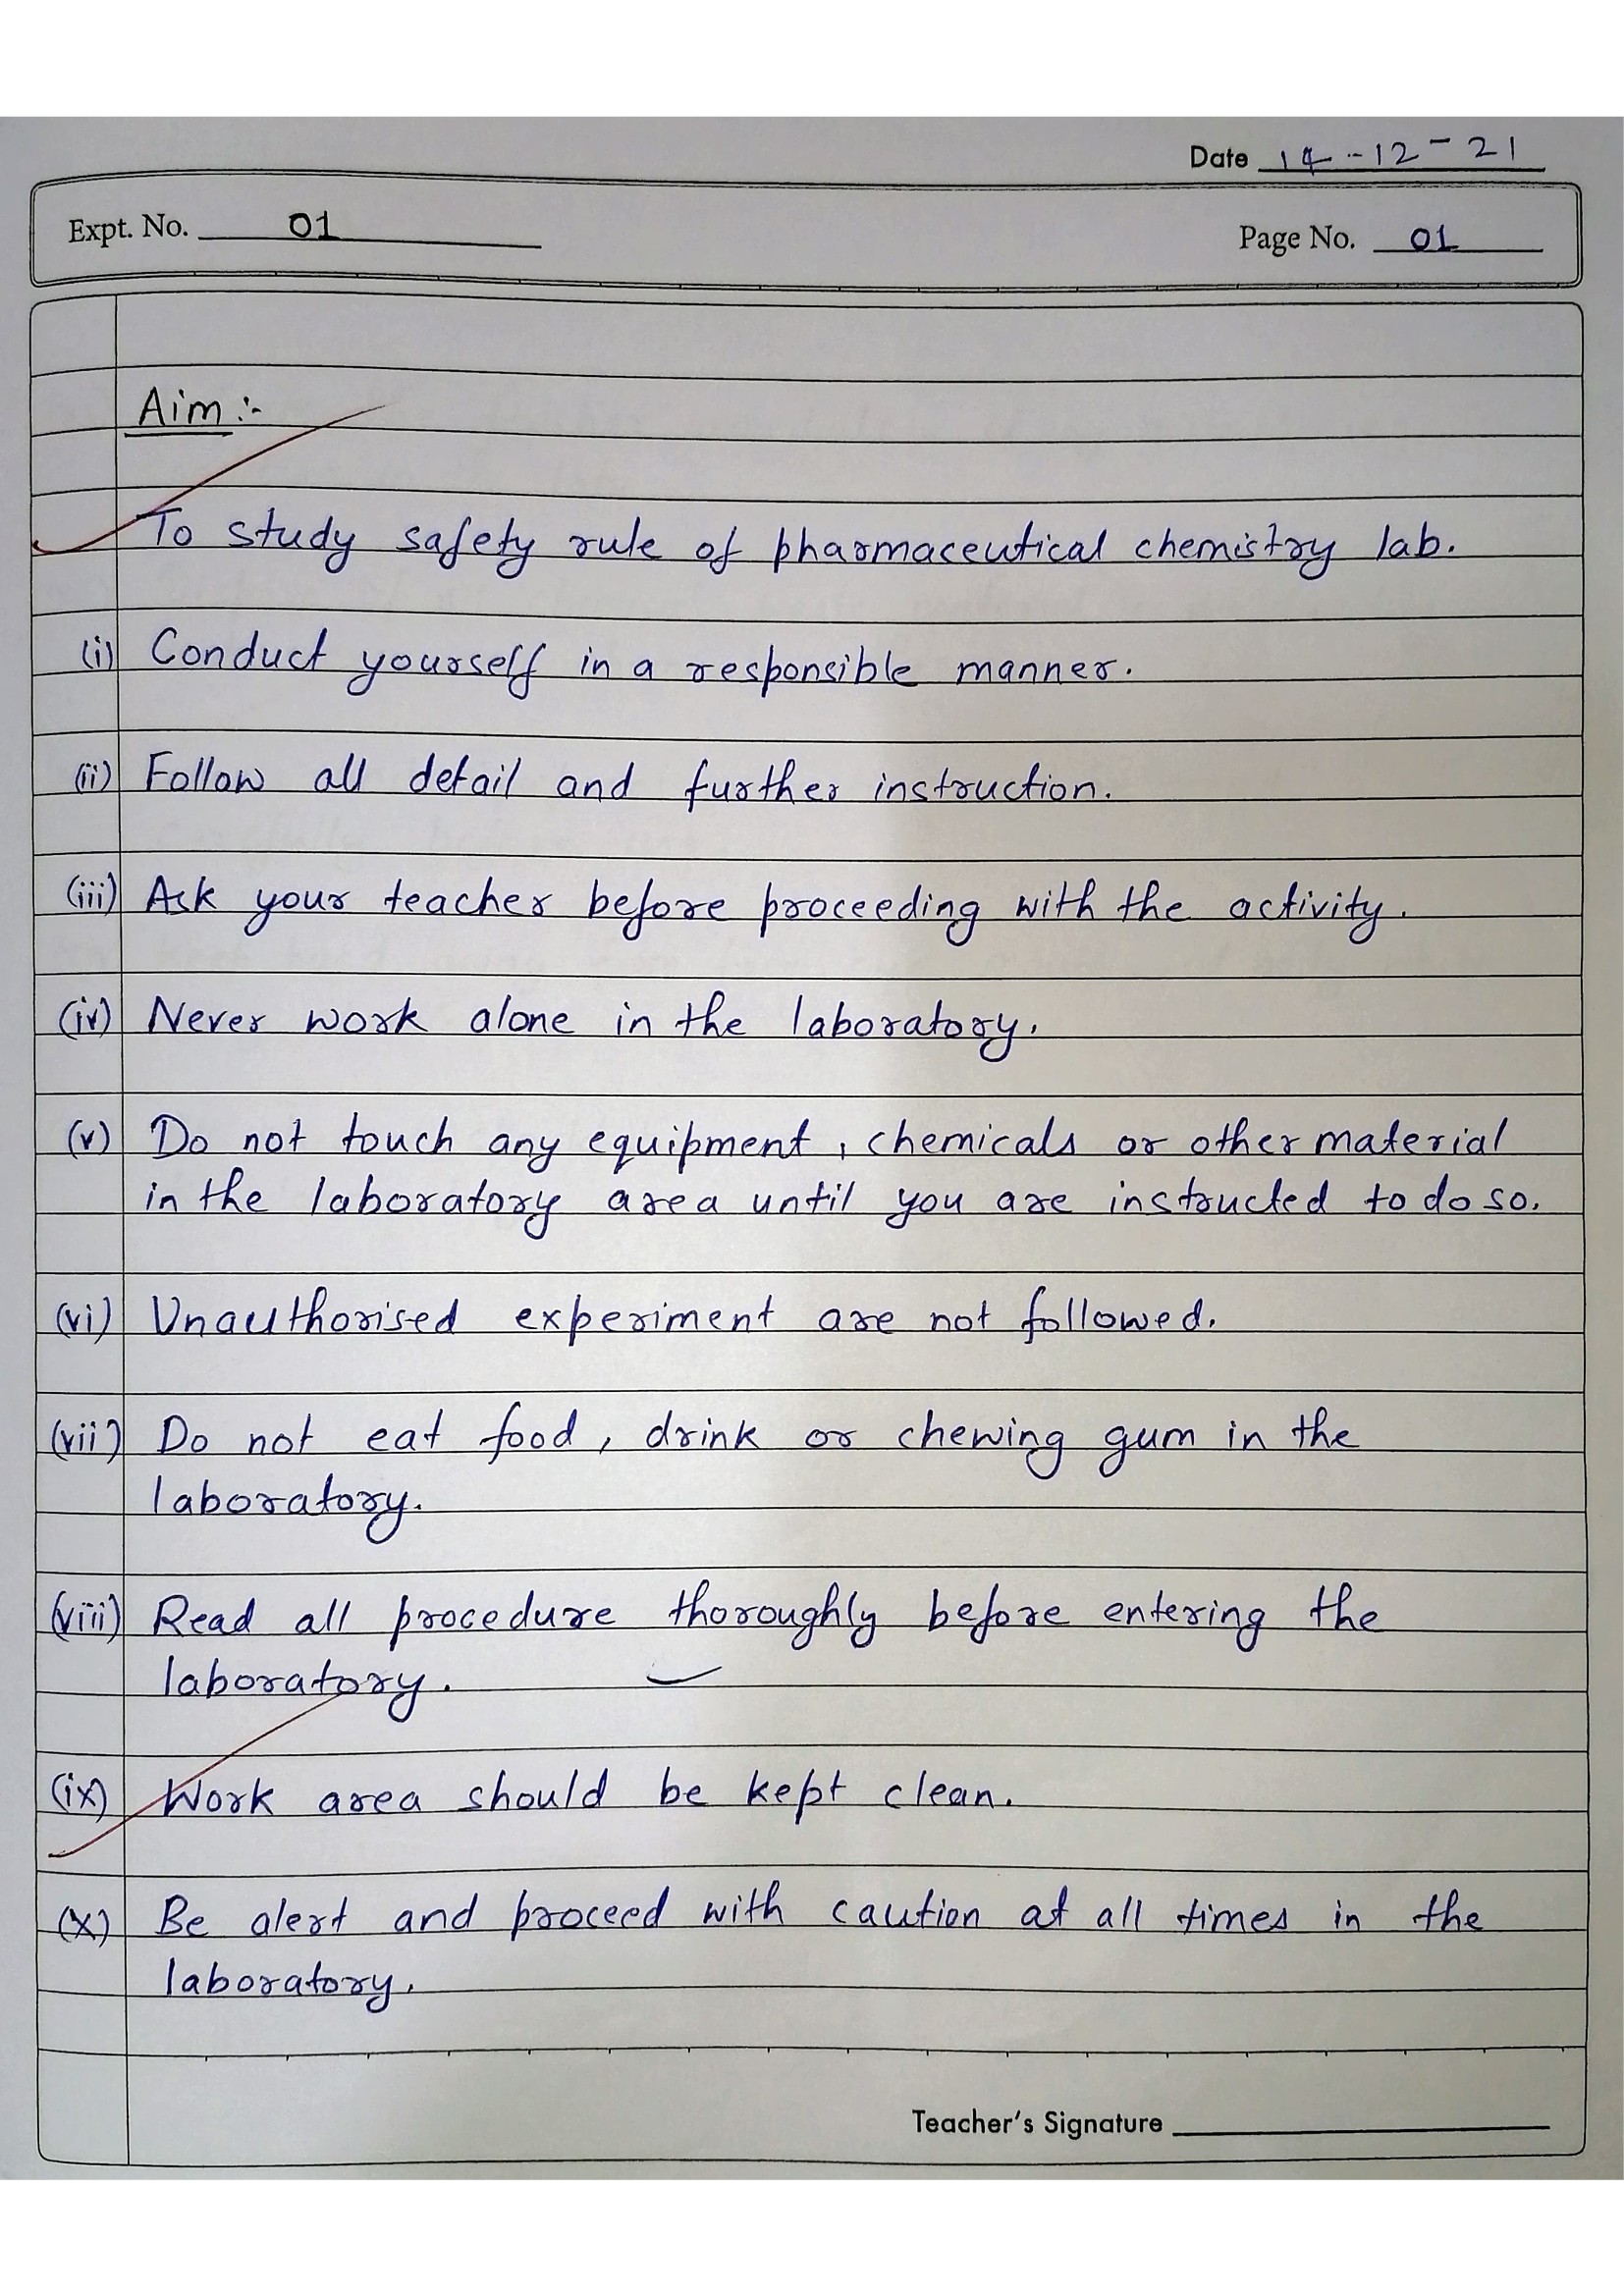 Date 14-12-21
Expt. No. 01
Page No. 01
Aim :-
To study safety rule of pharmaceutical chemistry lab.
(i) Conduct yourself in a responsible manner.
(ii) Follow all detail and further instruction.
(iii) Ask your teacher before proceeding with the activity.
(iv) Never work alone in the laboratory.
(v) Do not touch any equipment, chemicals or other material
in the laboratory area until you are instructed to do so.
(vi) Unauthorised experiment are not followed.
(vii) Do not eat food, drink or chewing gum in the
laboratory.
(viii) Read all procedure thoroughly before entering the
laboratory.
(ix) Work area should be kept clean.
(x) Be alert and proceed with caution at all times in the
laboratory.
Teacher's Signature